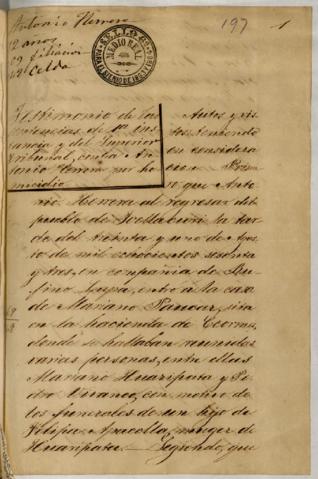 Antonio Herrera
12 años
09 filiacion
42 Celda
197
1
SELLO 6º
MEDIO REAL
Testimonio de las
sentencias de 1ª ins
tancia y del Superior
Tribunal, contra An
tonio Herrera por ho
micidio
Autos y vis
tos teniendo
en considera
cion Prime
ro que Anto
nio Herrera al regresar del
pueblo de la tar
de del treinta y uno de Agos
to de mil ochocientos sesenta
y tres, en compañia de Ru
fino entró a la casa
de Mariano Paucar, sita
en la hacienda de
donde se hallaban reunidas
varias personas, entre ellas
Mariano Huaripata y Pe
dro con motivo de
los funerales de un hijo de
Felipa muger de
Huaripata. Segundo, que